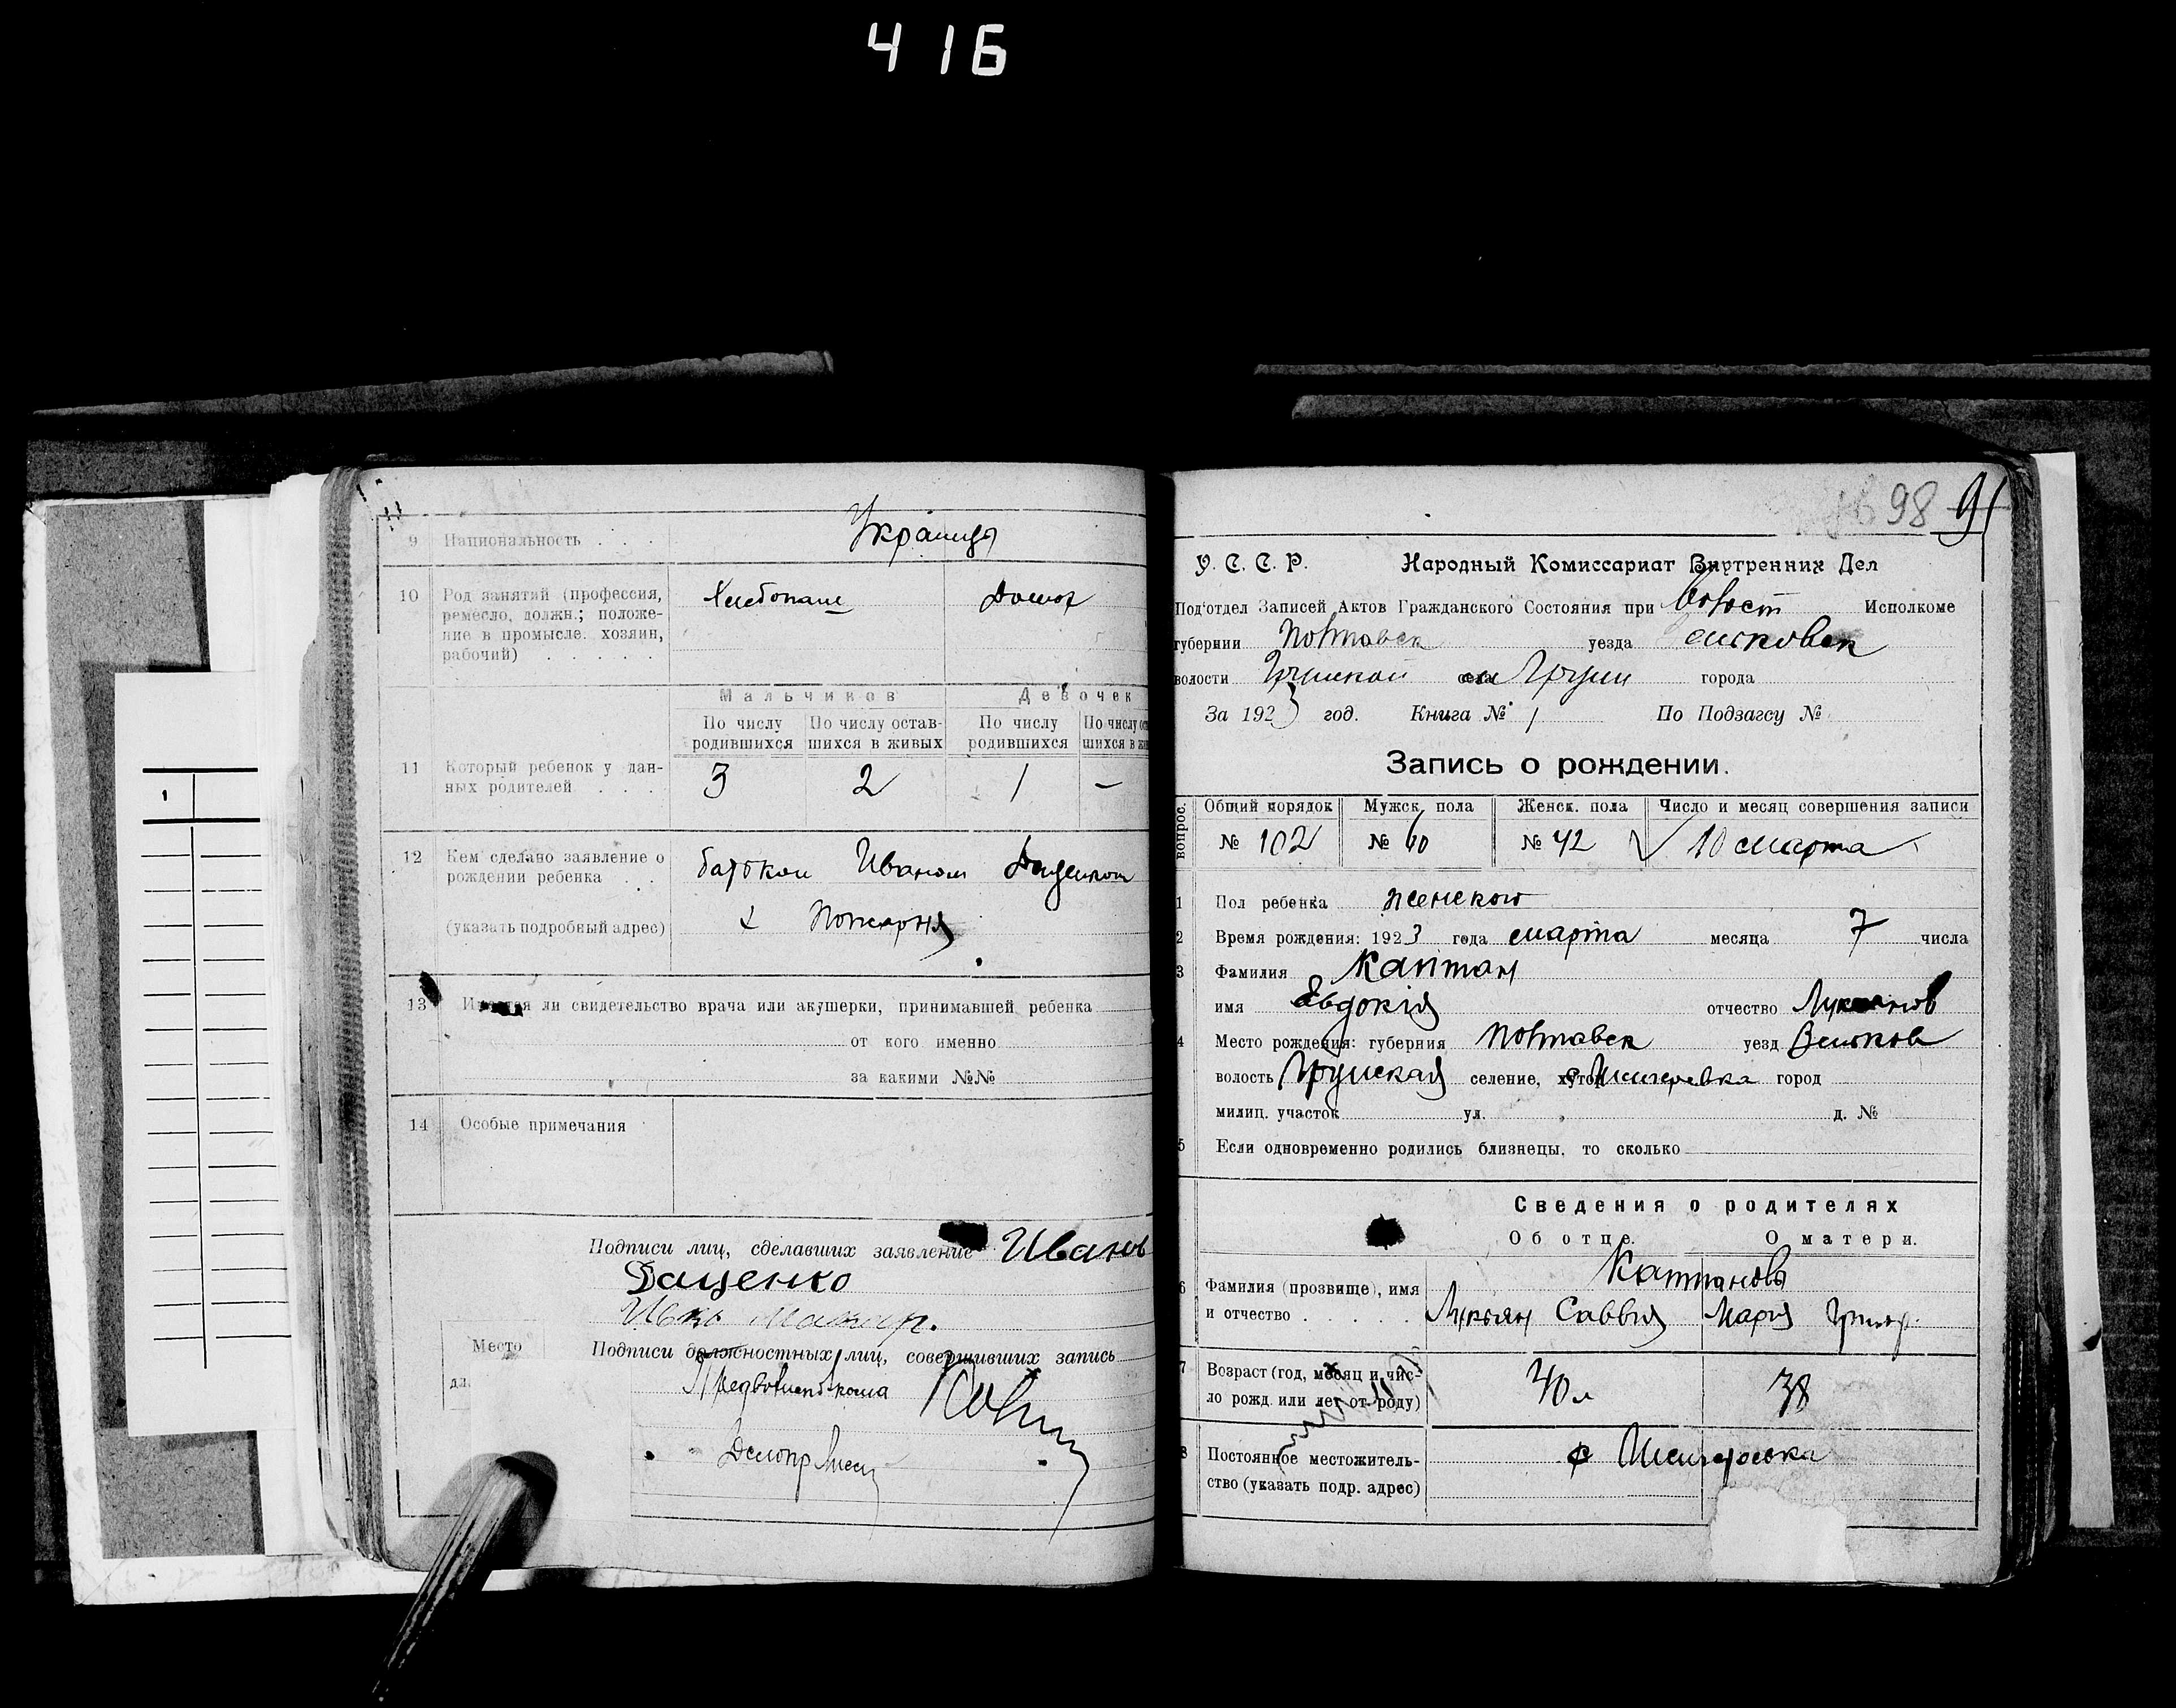 416
9 Национальность . . . Украинцы
10 Род занятий (профессия, Хлебопаш Домох
ремесло, должн.; положе-
ние в промысле. хозяин,
рабочий) . . . . .
Мальчиков Девочек
По числу По числу остав- По числу По числу
родившихся шихся в живых родившихся шихся в
11 Который ребенок у дан- 3 2 1 —
ных родителей . . .
12 Кем сделано заявление о батьком Иваном Даценком
рождении ребенка . .
(указать подробный адрес)
13 ли свидетельство врача или акушерки, принимавшей ребенка
от кого именно
за какими №№
14 Особые примечания
Подписи лиц, сделавших заявление Иванъ
Даценко
Место Подписи должностных лиц, совершивших запись
Делопр
98 91
У. С. С. Р. Народный Комиссариат Внутренних Дел
Под'отдел Записей Актов Гражданского Состояния при Волост Исполкоме
губернии Полтавск уезда
волости Грунской села Груни города
За 1923 год. Книга № 1 По Подзагсу №
Запись о рождении.
вопрос. Общий порядок Мужск. пола Женск. пола Число и месяц совершения записи
№ 102 № 60 № 42 10 марта
1 Пол ребенка женского
2 Время рождения: 1923 года марта месяца 7 числа
3 Фамилия Каптан
имя Євдокія отчество
4 Место рождения: губерния Полтавск уезд
волость Грунская селение, хутор город
милиц. участок ул. д. №
5 Если одновременно родились близнецы, то сколько
Сведения о родителях
Об отце. О матери.
Каптановы
6 Фамилия (прозвище), имя
и отчество . . . . . Лукьян Саввич Мария Григор.
7 Возраст (год, месяц и чис- 40 л 38
ло рожд. или лет от роду)
8 Постоянное местожитель- с
ство (указать подр. адрес)